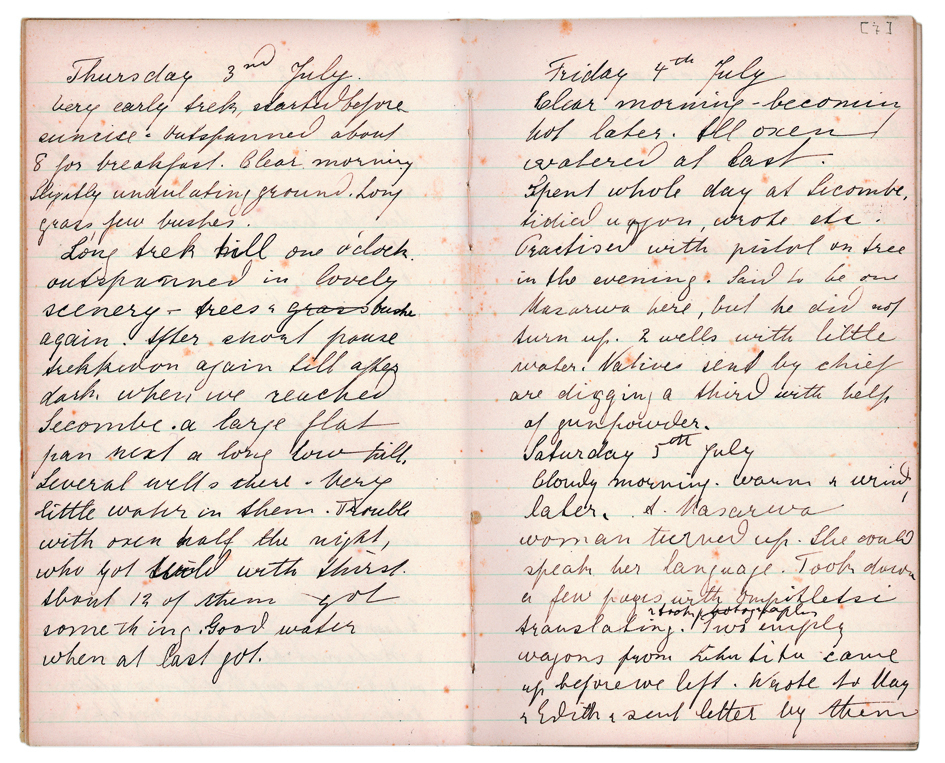 Thursday 3rd July.
Very early trek, started before
sunrise - outspanned about
8 for breakfast. Clear morning
Slightly undulating ground. Long
grass, few bushes.
Long trek till one o'clock.
outspanned in lovely
scenery - trees & grass bushes
again. After short pause
trekked on again till after
dark, when we reached
Secombe. a large flat
pan next a long low hill.
Several wells there - Very
little water in them. Trouble
with oxen half the night,
who got with thirst.
About 12 of them got
something. Good water
when at last got.
[7]
Friday 4th July
Clear morning - becoming
hot later. All oxen
watered at last.
Spent whole day at Secombe,
tidied wagon, wrote etc.
Practised with pistol on tree
in the evening. Said to be one
Masarwa here, but he did not
turn up. 2 wells with little
water. Natives sent by chief
are digging a third with help
of gunpowder.
Saturday 5th July
Cloudy morning. warm & windy
later. A. Masarwa
woman turned up. She could
speak her language. Took down
a few pages with
& took photographs
translating. Two empty
wagons from came
up before we left. Wrote to May
& Edith & sent letter by them